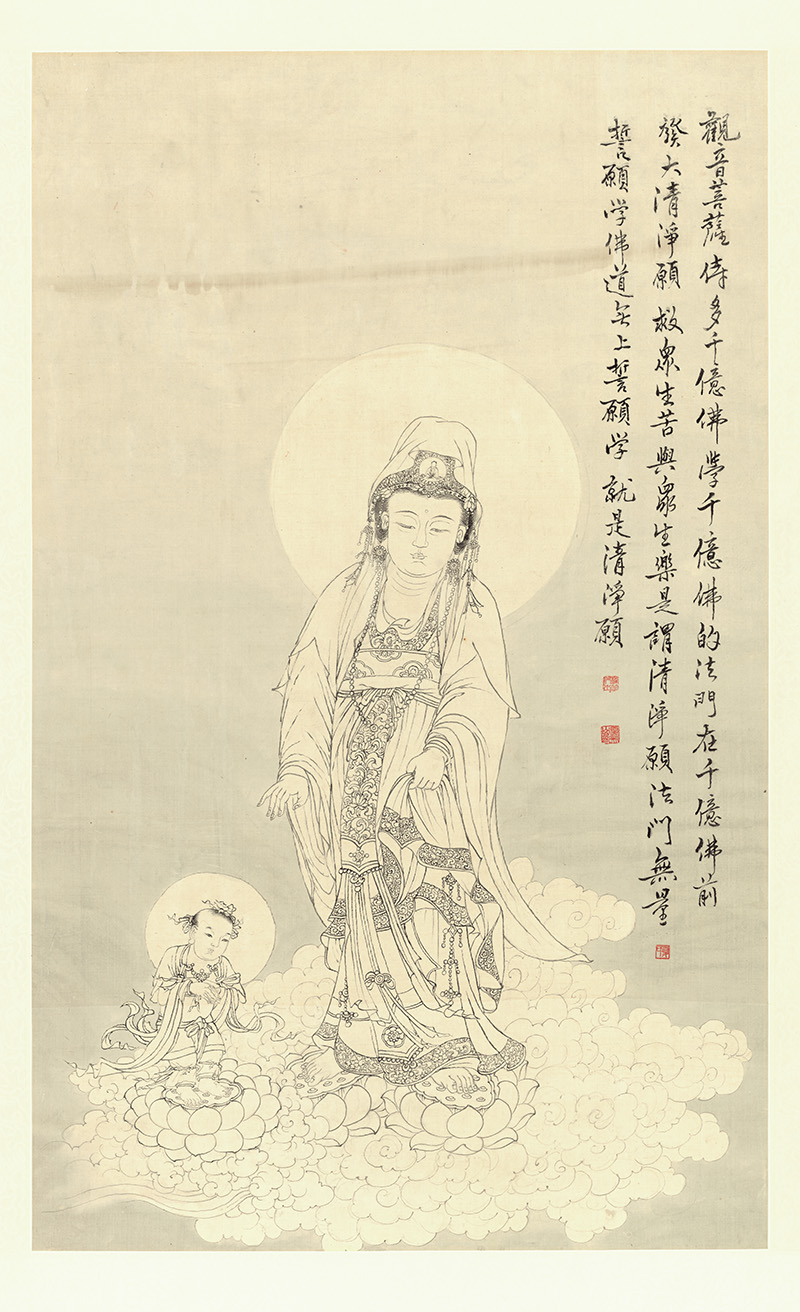 觀音菩薩侍多千億佛學千億佛的法門在千億佛前
發大清淨願救眾生苦與眾生樂是謂清淨願法門無量
誓願学佛道無上誓願学就是清淨願